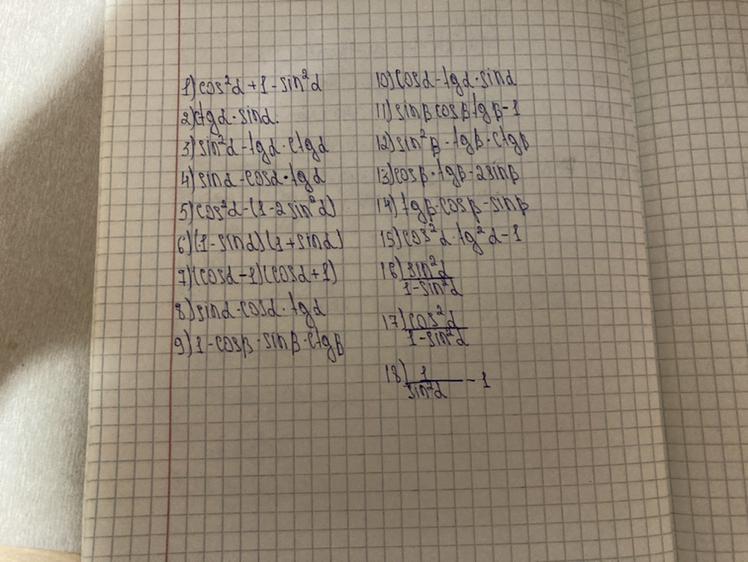 1) cos²α + 1 - sin²α
2) ctgα · sinα.
3) sin²α - tgα · ctgα
4) sinα - cosα · tgα
5) cos²α - (1 - 2sin²α)
6) (1 - sinα)(1 + sinα)
7) (cosα - 1)(cosα + 1)
8) sinα · cosα · tgα
9) 1 - cosβ · sinβ · ctgβ
10) cosα · tgα · sinα
11) sinβ cosβ tgβ - 1
12) sin²β - tgβ · ctgβ
13) cosβ · tgβ - 2sinβ
14) tgβ · cosβ - sinβ
15) cos²α · tg²α - 1
16) sin²α / 1 - sin²α
17) cos²α / 1 - sin²α
18) 1 / sin²α - 1